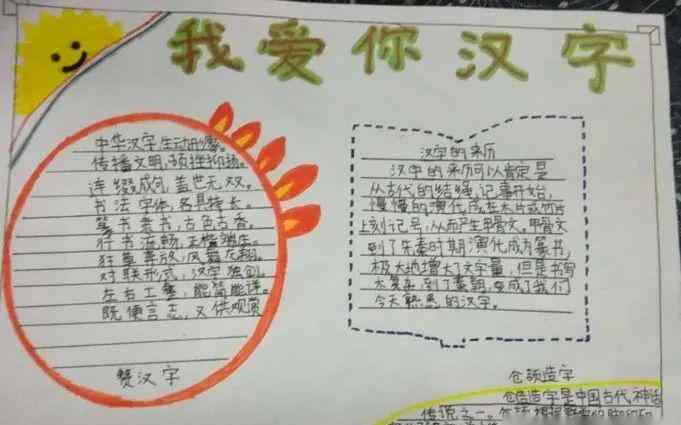 我爱你汉字
中华汉字,生动形象。
传播文明,顿挫抑扬。
连缀成句,盖世无双。
书法字体,各具特长。
篆书隶书,古色古香。
行书流畅,正楷端庄。
狂草奔放,凤翥龙翔。
对联形式,汉字独创。
左右工整,能简能详。
既便言志,又供观赏
赞汉字
汉字的来历
汉字的来历可以肯定是
从古代的结绳记事开始,
慢慢的演化成在木片或竹片
上刻记号,从而产生甲骨文。甲骨文
到了先秦时期演化成为篆书,
极大地增大了文字量,但是书写
太复杂,到了秦朝,变成了我们
今天熟悉的汉字。
仓颉造字
仓颉造字是中国古代神话
传说之一。